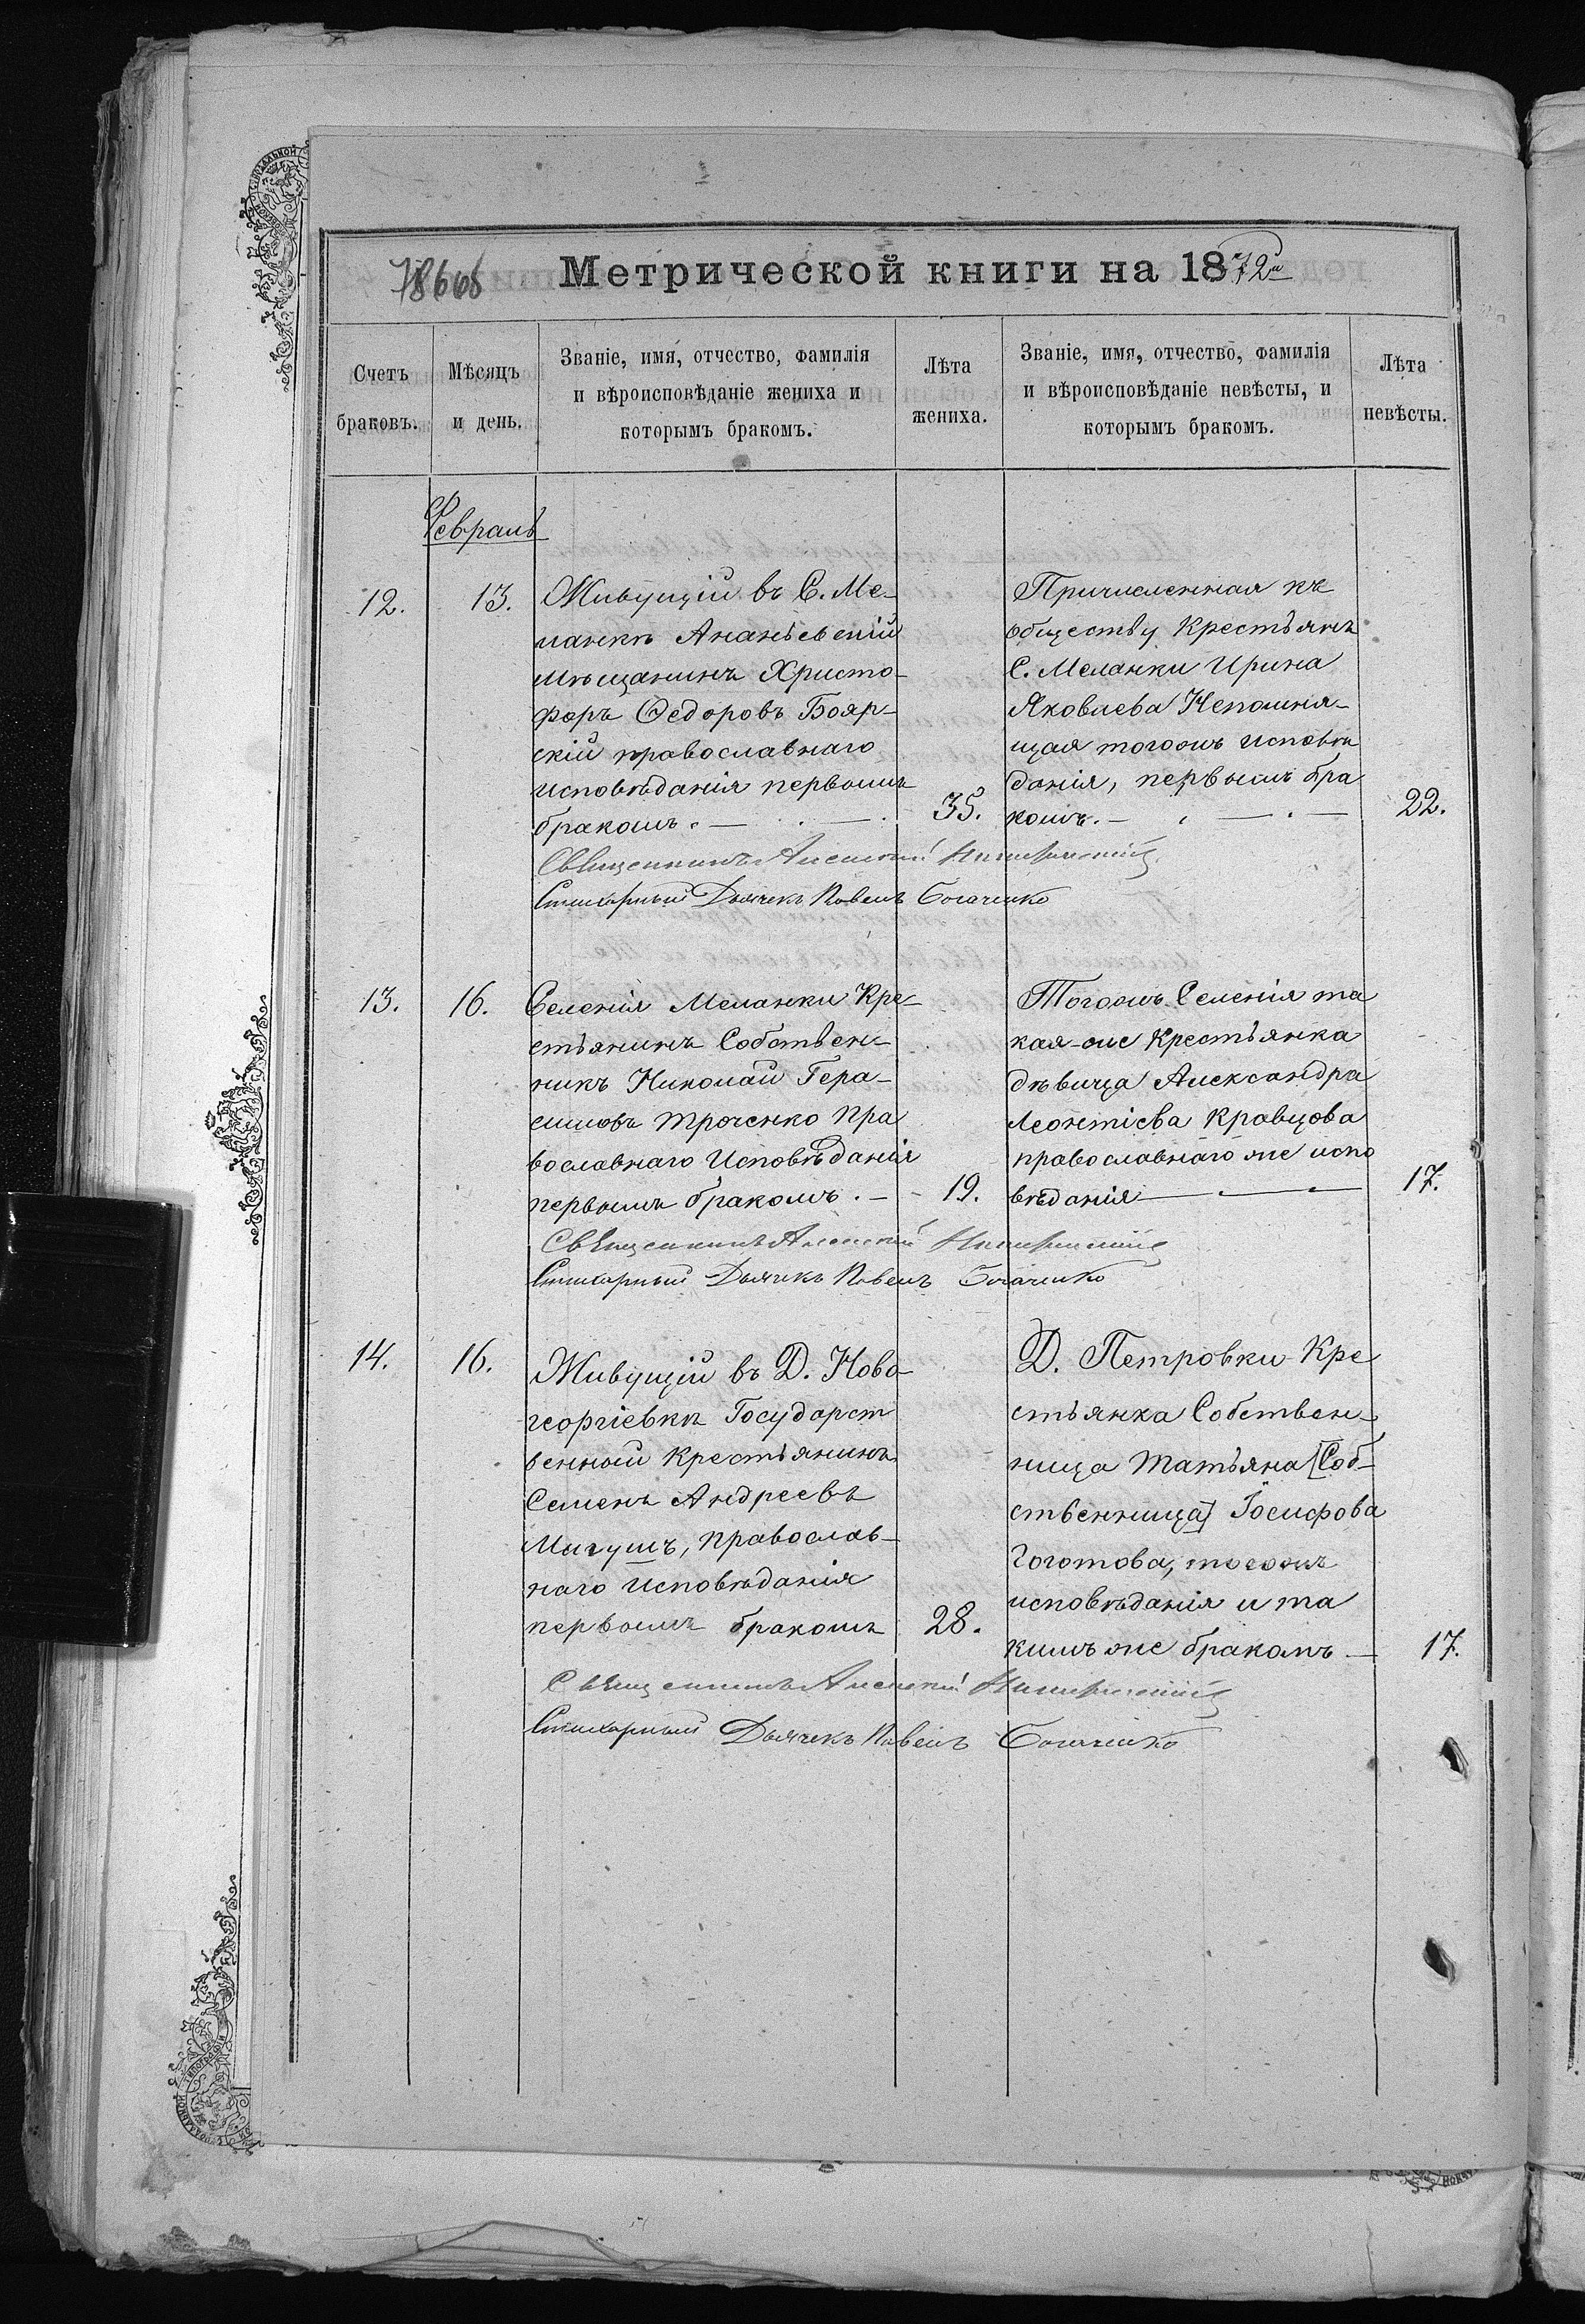 Метрической книги на 1872й
Счетъ браковъ.
Мѣсяцъ и день.
Званіе, имя, отчество, фамилія
и вѣроисповѣданіе жениха и
которымъ бракомъ.
Лѣта жениха.
Званіе, имя, отчество, фамилія
и вѣроисповѣданіе невѣсты, и
которымъ бракомъ.
Лѣта невѣсты.
Февраль
12.
13.
Живущій въ С. Ме-
ланкѣ Ананьевскій
мѣщанинъ Христо-
форъ Ѳедоровъ Бояр-
скій православнаго
исповѣданія первымъ
бракомъ.
35.
Причисленная къ
обществу Крестьянъ
С. Меланки Ирина
Яковлева Непомня-
щая тогожъ исповѣ
данія, первымъ бра
комъ.
22.
Священникъ Алексій
Стихарный Дьячекъ Павелъ Богаченко
13.
16.
Селенія Меланки Кре-
стьянинъ Собствен-
никъ Николай Гера-
симовъ Троченко пра
вославнаго Исповѣданія
первымъ бракомъ.
19.
Тогожъ Селенія та
кая-же Крестьянка
дѣвица Александра
Леонтіева Кравцова
православнаго же испо
вѣданія
17.
Священникъ Алексій
Стихарный Дьячекъ Павелъ Богаченко
14.
16.
Живущій въ Д. Ново-
георгіевкѣ Государст
венный Крестьянинъ
Семенъ Андреевъ
Мигушъ, православ-
наго исповѣданія
первымъ бракомъ
28.
Д. Петровки Кре
стьянка Собствен-
ница Татьяна [Соб-
ственница] Іосифова
Гоготова, тогожъ
исповѣданія и та
кимъ же бракомъ
17.
Священникъ Алексій
Стихарный Дьячекъ Павелъ Богаченко